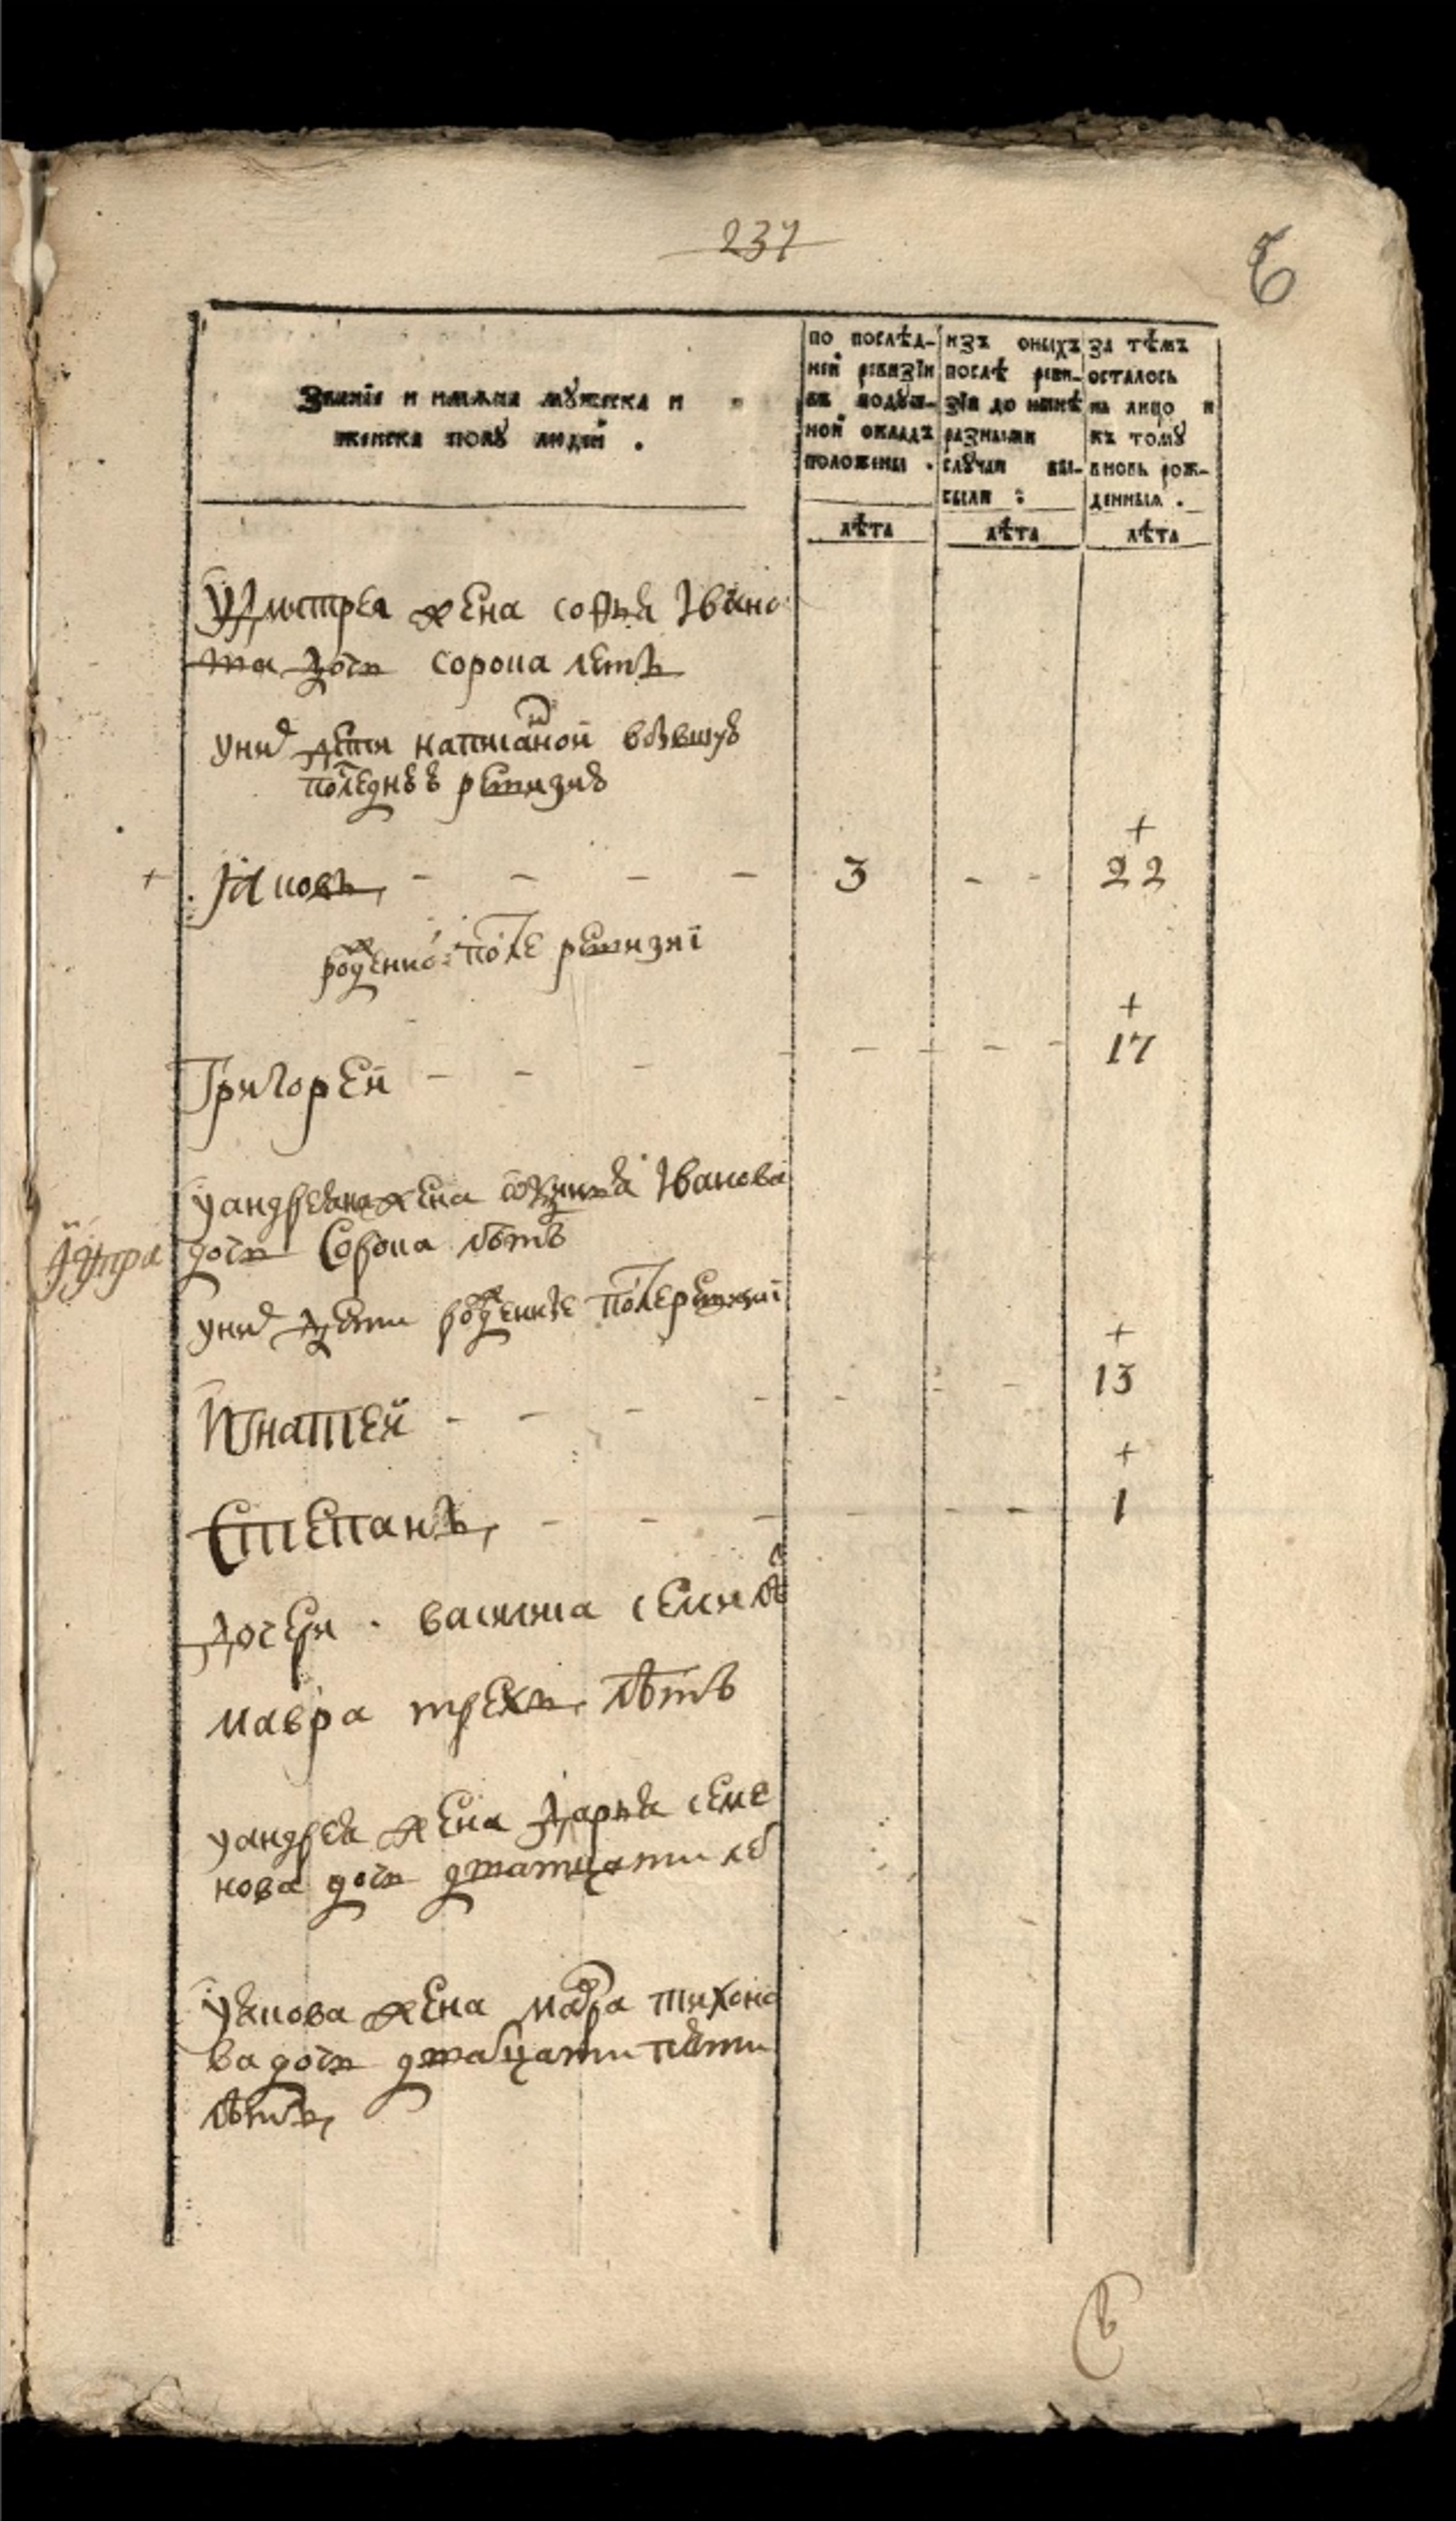 237
Званїе и имѧна мꙋжеска и
женска полꙋ людей .
по послѣд-
ней ревизїи
въ подꙋш-
ной окладъ
положены .
изъ оныхъ
послѣ реви-
зїи до нынѣ
разными
слꙋчаи вы-
были :
за тѣмъ
осталось
на лицо и
къ томꙋ
вновь рож-
денныѧ .
лѣта лѣта лѣта
удмитрея жена софья Івано
ва дочь сорока летъ
уних дети написаной вбывшую
последнюю ревизию
+ Яковъ - - - - 3 - - + 22
рожденной после ревизиї
Григорей - - - - - - - - + 17
уандреяна жена Іванова
дочь сорока лѣтъ
уних дети рожденые после ревизиї
Игнатей - - - - - - - + 13
Степанъ - - - - - - + 1
дочери василиса семи лѣ
мавра трехъ лѣтъ
уандрея жена дарья семе
нова дочь дватцати ле
уякова жена мавра тихоно
ва дочь дватцати пяти
лѣтъ